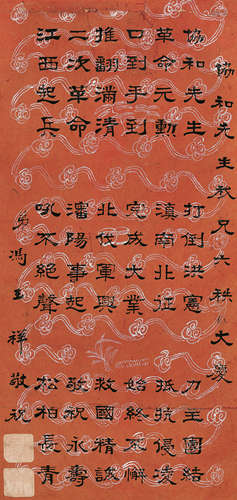 協和先生秋兄六秩大慶
協和先生
革命元勳
口到手到
推翻滿清
二次革命
江西起兵
打倒洪憲
滇南北征
完成大業
北伐軍興
瀋陽事起
吼不絕聲
力主團結
抵抗侵凌
始終不懈
救國精誠
敬祝永壽
松柏長青
弟馮玉祥敬祝